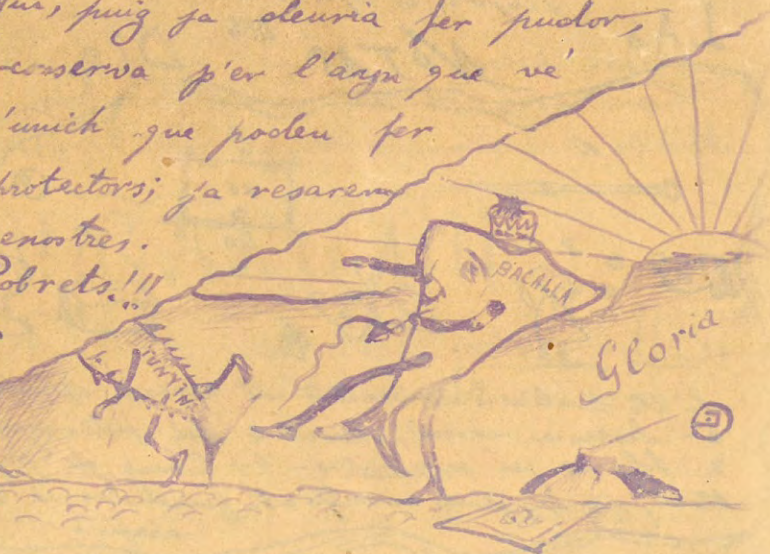 puig ja deuria fer pudor,
conserva p'er l'anyu que vé
unich que podeu fer
protectors; ja resarem
enostres.
Pobrets!!!
BACALLA
TUNYINA
Gloria